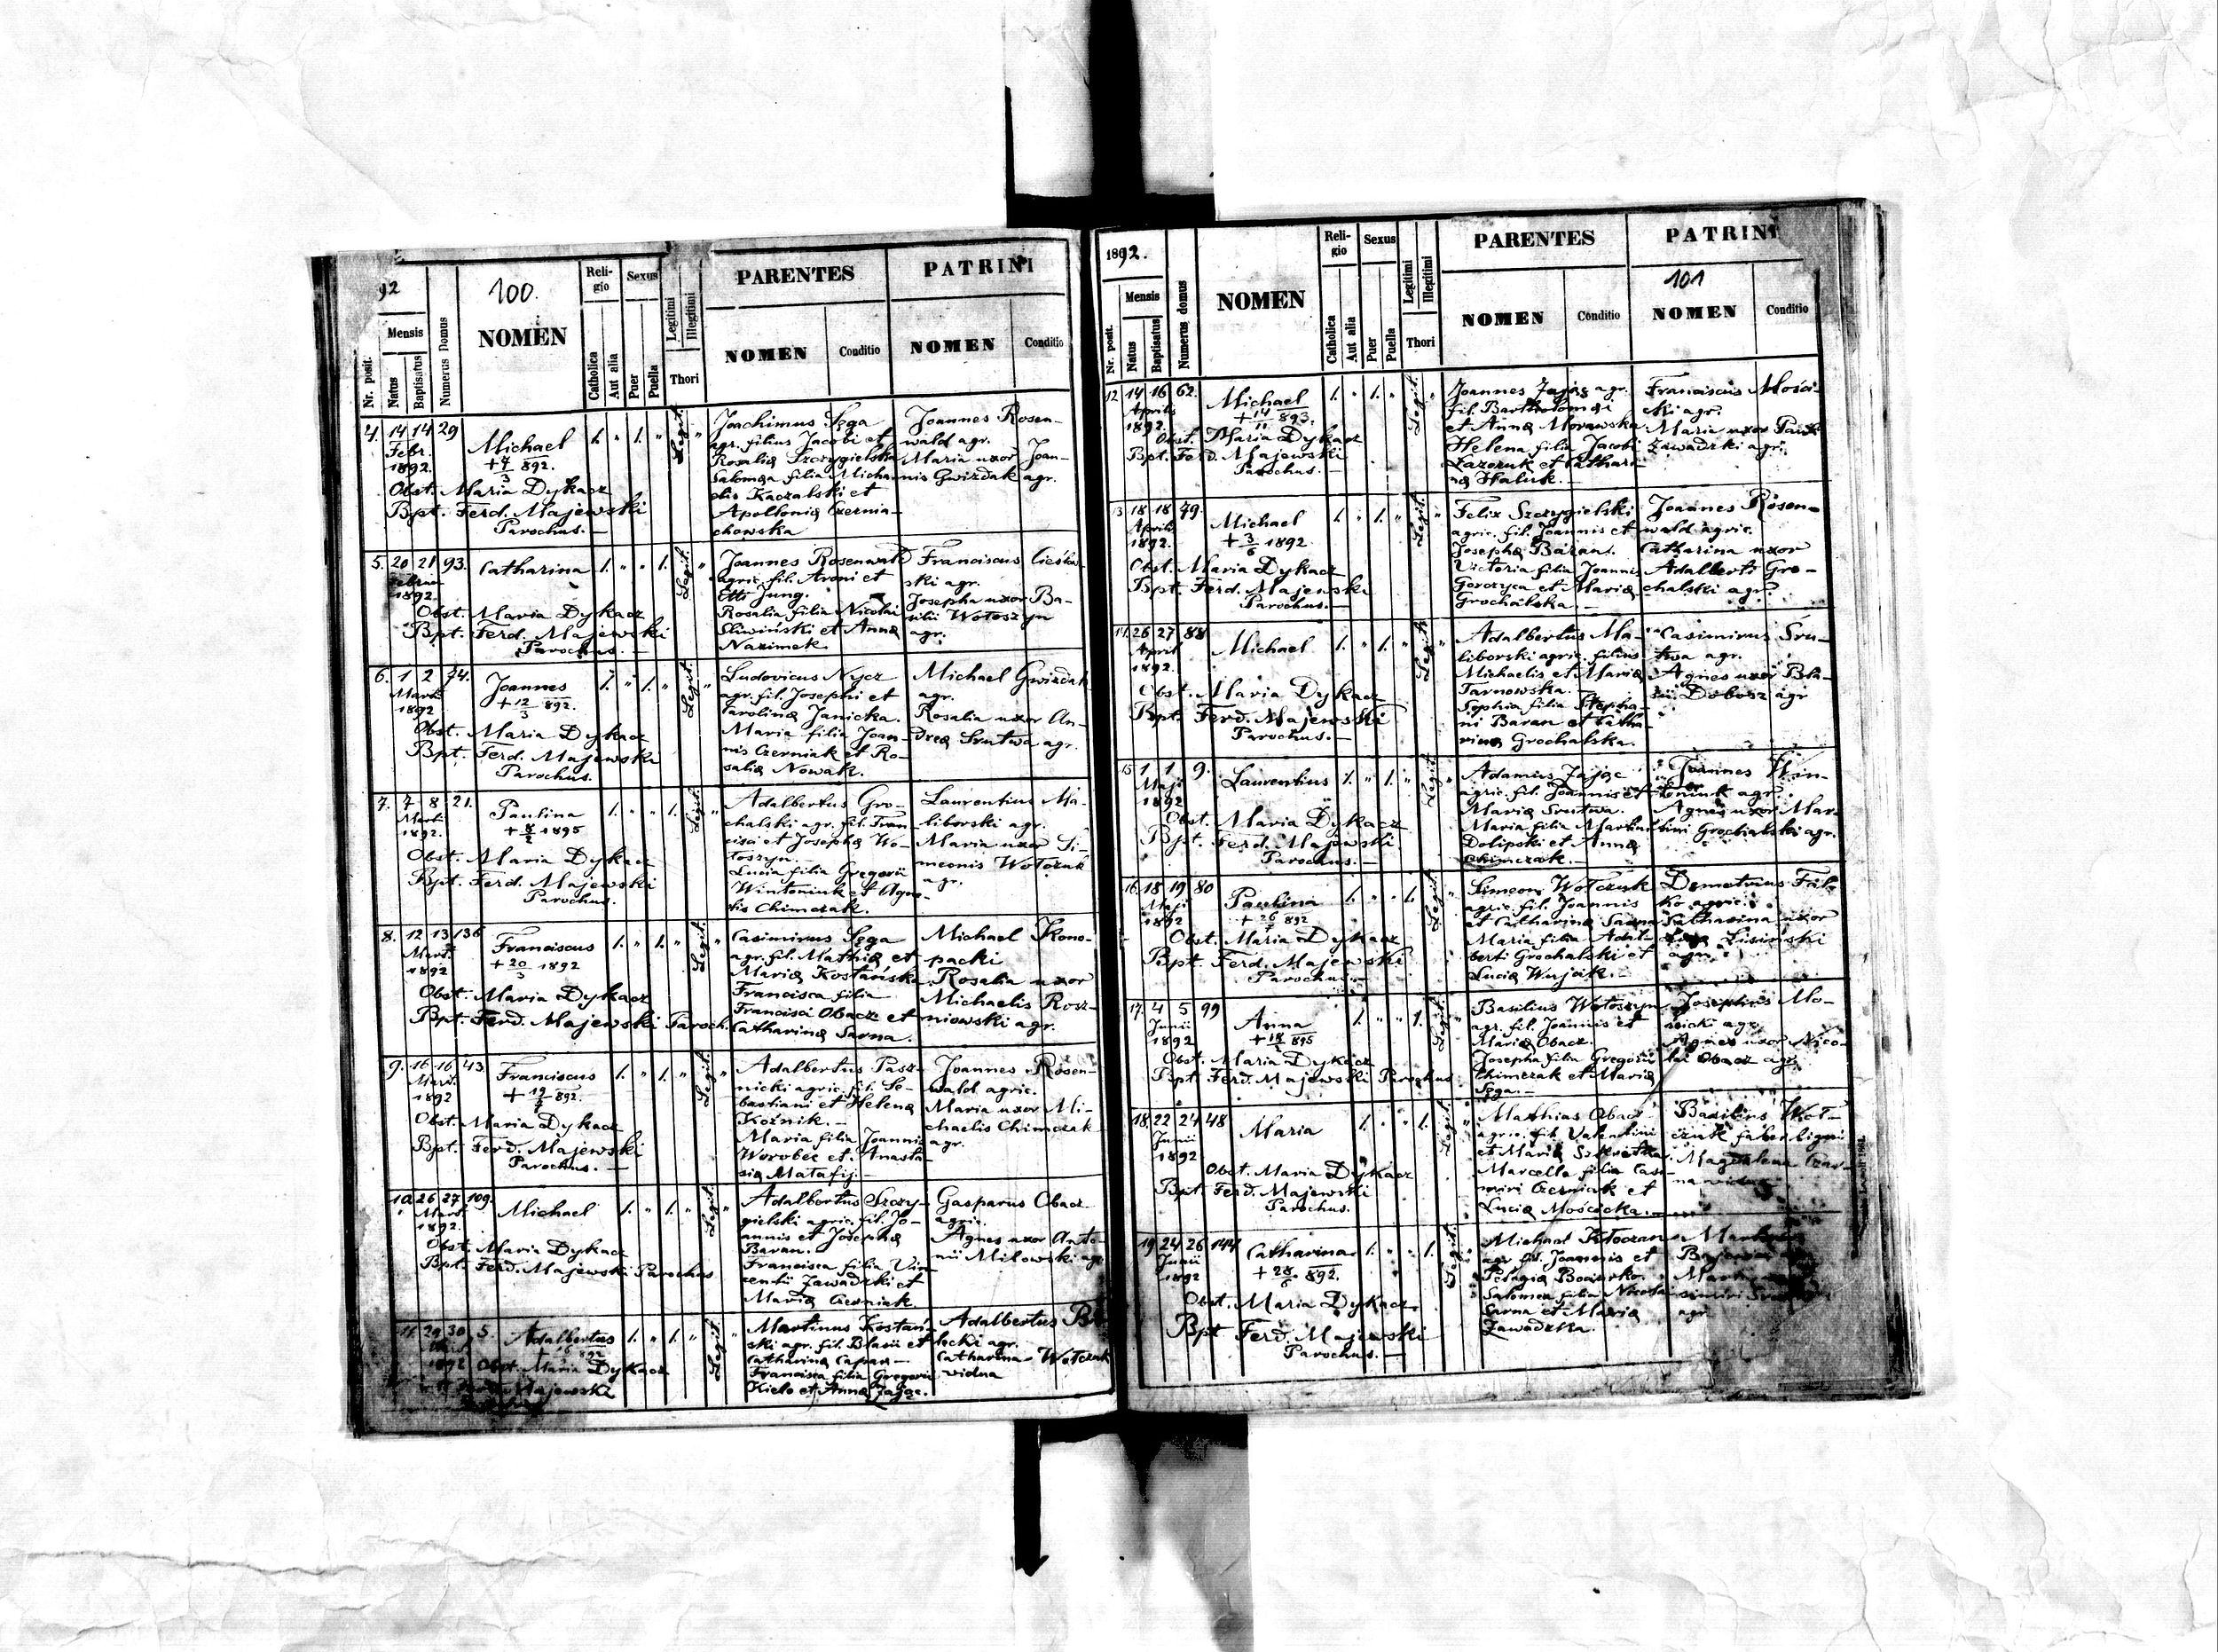 92
100.
Mensis
Nr. posit.
Natus
Baptisatus
Numerus Domus
NOMEN
Reli-
gio
Catholica
Aut alia
Sexus
Puer
Puella
Legitimi
Illegitimi
Thori
PARENTES
NOMEN
Conditio
PATRINI
NOMEN
Conditio
4. 14 14 29
Febr.
1892.
Michael
+ 7/3 892.
Obst. Maria Dykacz
Bpt. Ferd. Majewski
Parochus. —
1. " 1. " Legit. "
Joachimus Sęga
agr. filius Jacobi et
Rosaliæ Szczygielska
Salomea filia Micha-
elis Kaczalski et
Apolloniæ Czernia-
chowska
Joannes Rosen-
wald agr.
Maria uxor Joan-
nis Gwizdak agr.
5. 20 21 93.
1892.
Catharina
Obst. Maria Dykacz
Bpt. Ferd. Majewski
Parochus. —
1. " " 1. Legit. "
Joannes Rosenwald
agric. fil. Aroni et
Etti Jung.
Rosalia filia Nicolai
Sliwiński et Annæ
Nazimek
Franciscus
ski agr.
Josepha uxor Ba-
silii Wołoszyn
agr.
6. 1 2 74.
Marti
1892
Joannes
+ 12/3 892.
Obst. Maria Dykacz
Bpt. Ferd. Majewski
Parochus.
1. " 1. " Legit. "
Ludovicus Nycz
agr. fil. Josephi et
Carolinæ Janicka.
Maria filia Joan-
nis Czerniak et Ro-
saliæ Nowak.
Michael Gwizdak
agr.
Rosalia uxor An-
dreæ Srutwa agr.
7. 7 8 21.
Marti
1892.
Paulina
+ 8/2 1895
Obst. Maria Dykacz
Bpt. Ferd. Majewski
Parochus.
1. " " 1. Legit. "
Adalbertus Gro-
chalski agr. fil. Fran-
cisci et Josephæ Wo-
łoszyn. —
Lucia filia Gregorii
Wintoniuk et Agne-
tis Chimczak.
Laurentius Ma-
liborski agr.
Maria uxor Si-
meonis Wołczuk
agr.
8. 12 13 136
Marti
1892
Franciscus
+ 20/3 1892
Obst. Maria Dykacz
Bpt. Ferd. Majewski Paroch.
1. " 1. " Legit. "
Casimirus Sęga
agr. fil. Mathiæ et
Mariæ Kostańska
Francisca filia
Francisci Obacz et
Catharinæ Sarna.
Michael Kono-
packi
Rosalia uxor
Michaelis Rosz-
niowski agr.
9. 16 16 43.
Mart.
1892
Franciscus
Obst. Maria Dykacz
Bpt. Ferd. Majewski
Parochus. —
1. " 1. " Legit. "
Adalbertus Pasz-
nicki agric. fil. Se-
bastiani et Helenæ
Koźnik. —
Maria filia Joannis
Worobec et Anasta-
siæ Matafij. —
Joannes Rosen-
wald agric.
Maria uxor Mi-
chaelis Chimczak
agr.
10. 26 27 109.
Mart.
1892.
Michael
Obst. Maria Dykacz
Bpt. Ferd. Majewski Parochus
1. " 1. " Legit. "
Adalbertus Szczy-
gielski agric. fil. Jo-
annis et Josephæ
Baran.
Francisca filia Vin-
centii Zawadzki et
Mariæ Czerniak.
Gasparus Obacz
agric.
Agnes uxor Anto-
nii Milowski agr.
11. 29 30 5.
1892
Adalbertus
Obst. Maria Dykacz
Majewski
1. " 1. " Legit. "
Martinus Kostań-
ski agr. fil. Blasii et
Catharinæ Capar —
Francisca filia Gregorii
Kielo et Annæ Zając.
Adalbertus
łocki agr.
Catharina Wołczuk
vidua
1892.
Nr. posit.
Mensis
Natus
Baptisatus
Numerus domus
NOMEN
Reli-
gio
Catholica
Aut alia
Sexus
Puer
Puella
Legitimi
Illegitimi
Thori
PARENTES
NOMEN
Conditio
PATRINI
101
NOMEN
Conditio
12 14 16 62.
Aprilis
1892.
Michael
+ 14/11 893.
Obst. Maria Dykacz
Bpt. Ferd. Majewski
Parochus. —
1. " 1. " Legit. "
Joannes Zając agr.
fil. Bartholomæi
et Annæ Morawska
Helena filia Jacobi
Łazoruk et Cathari-
næ Haluk. —
Franciscus Mości-
cki agr.
Maria uxor Pauli
Zawadzki agr.
13 18 18 79.
Aprilis
1892.
Michael
+ 3/6 1892.
Obst. Maria Dykacz
Bpt. Ferd. Majewski
Parochus. —
1. " 1. " Legit. "
Felix Szczygielski
agric. fil. Joannis et
Josephæ Baran.
Victoria filia Joannis
Gorczyca et Mariæ
Grochalska. —
Joannes Rosen-
wald agric.
Catharina uxor
Adalberti Gro-
chalski agr.
14. 26 27 88
April
1892.
Michael
Obst. Maria Dykacz
Bpt. Ferd. Majewski
Parochus. —
1. " 1. " Legit. "
Adalbertus Ma-
liborski agric. filius
Michaelis et Mariæ
Tarnowska. —
Sophia filia Stepha-
ni Baran et Catha-
rinæ Grochalska.
Casimirus Sru-
twa agr.
Agnes uxor Bla-
sii Dobosz agr
15 1 1 9.
Maji
1892
Laurentius
Obst. Maria Dykacz
Bpt. Ferd. Majewski
Parochus. —
1. " 1. " Legit. "
Adamus Zając
agric. fil. Joannis et
Mariæ Srutwa.
Maria filia Martini
Dolipski et Annæ
Chimczak. —
Joannes Win-
toniuk agr.
Agnes uxor Mar-
tini Grochalski agr.
16. 18 19 80
Maji
1892
Paulina
Obst. Maria Dykacz
Bpt. Ferd. Majewski
Parochus. —
1. " " 1. Legit. "
Simeon Wołczuk
agric. fil. Joannis
et Catharinæ Sarna
Maria filia Adal-
berti Grochalski et
Luciæ Wujcik. —
Demetrius
ko agric.
Catharina uxor
Lisiński
agr.
17. 4 5 99
Junii
1892
Anna
Obst. Maria Dykacz
Bpt. Ferd. Majewski Parochus
1. " " 1. Legit. "
Basilius Wołoszyn
agr. fil. Joannis et
Mariæ Obacz.
Josepha filia Gregorii
Chimczak et Mariæ
Sęga. —
Josephus Mo-
sicki agr.
Agnes uxor Nico-
lai Obacz agr.
18. 22 24 48
Junii
1892
Maria
Obst. Maria Dykacz
Bpt. Ferd. Majewski
Parochus.
1. " " 1. Legit. "
Mathias Obacz
agric. fil. Valentini
et Mariæ
Marcella filia Casi-
miri Czerniak et
Luciæ Mościcka. —
Basilius Woł-
czuk faber ligni
Magdalena Czar-
na vidua
19 24 26 144
Junii
1892
Catharina
+ 28/6 892.
Obst. Maria Dykacz
Bpt Ferd. Majewski
Parochus. —
1. " " 1. Legit. "
Michael
agr. fil. Joannis et
Pelagiæ
Salomea filia Nicolai
Sarna et Mariæ
Zawadzka.
agr